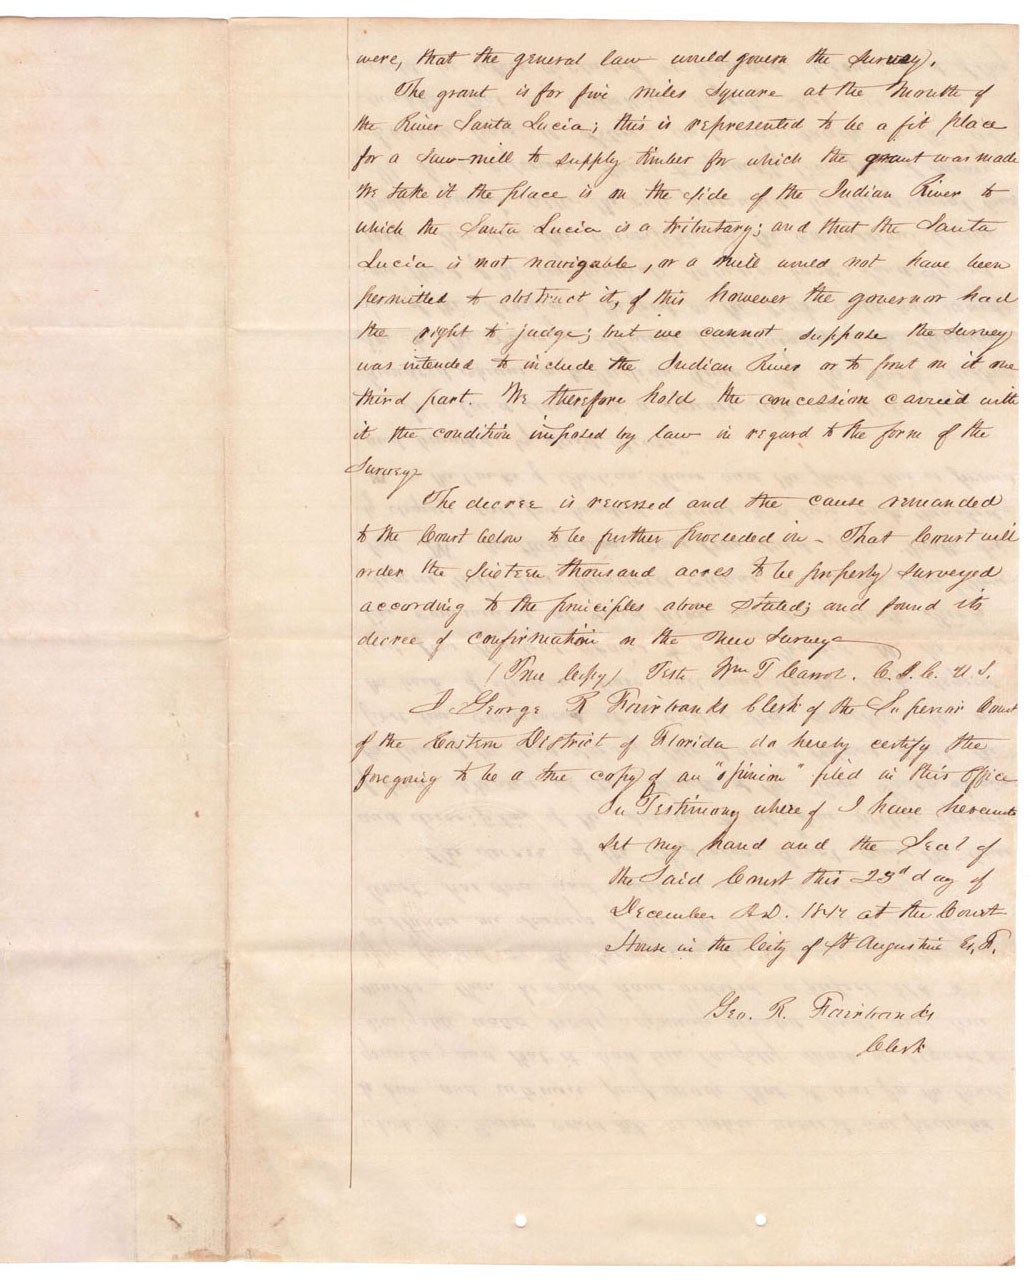 were, that the general law would govern the survey.
The grant is for five miles square at the Mouth of
the River Santa Lucia; this is represented to be a fit place
for a saw-mill to supply timber for which the grant was made
We take it the place is on the side of the Indian River to
which the Santa Lucia is a tributary; and that the Santa
Lucia is not navigable, or a mill would not have been
permitted to obstruct it, of this however the governor had
the right to judge; but we cannot suppose the survey
was intended to include the Indian River or to front on it one
third part. We therefore hold the concession carried with
it the condition imposed by law in regard to the form of the
Survey
The decree is reversed and the cause remanded
to the Court below to be further proceeded in - That Court will
order the sixteen thousand acres to be properly surveyed
according to the principles above stated; and found its
decree of confirmation on the new survey
(True Copy) Teste Wm T Carrol. C. S. C. U. S.
I George R Fairbanks Clerk of the Superior Court
of the Eastern District of Florida do hereby certify the
foregoing to be a true copy of an "opinion" filed in this office
In Testimony where of I have hereunto
set my hand and the Seal of
the Said Court this 23d day of
December A.D. at the Court
House in the City of St Augustine E. F.
Geo. R. Fairbanks
Clerk